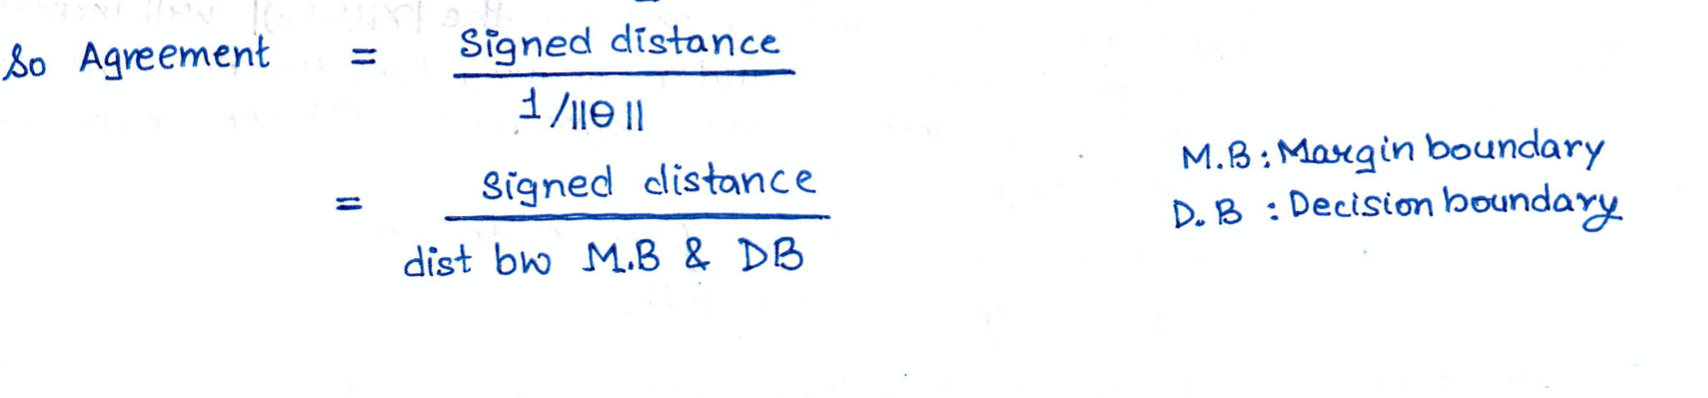 So Agreement = Signed distance
1/||θ||
= Signed distance
dist bw M.B & DB
M.B : Margin boundary
D.B : Decision boundary